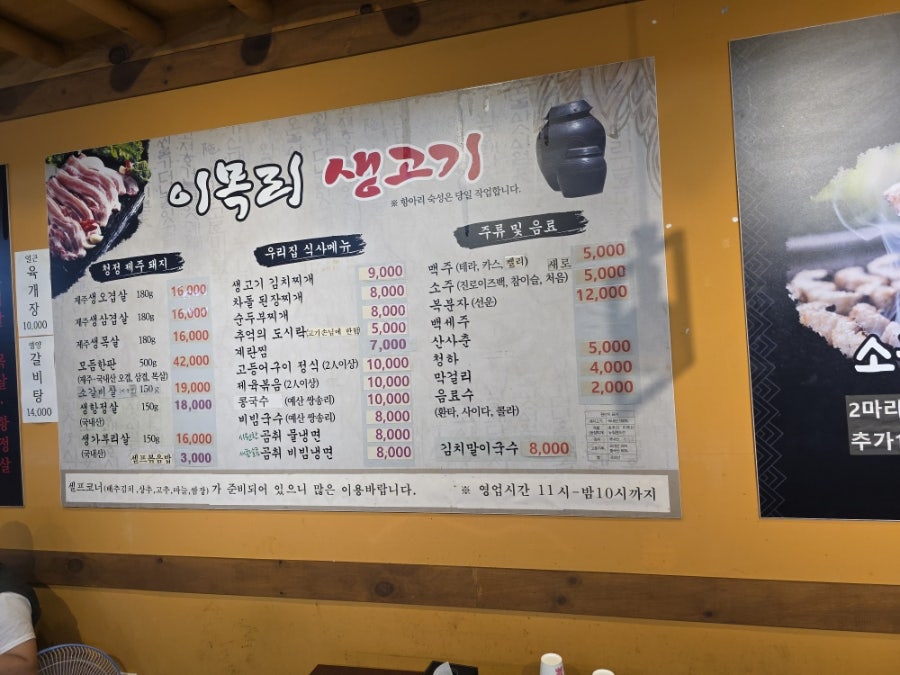 이목리 생고기
※ 항아리 숙성은 당일 작업합니다.
얼큰
육개장
10,000
갈비탕
14,000
청정 제주 돼지
제주생오겹살 180g 16,000
제주생삼겹살 180g 16,000
제주생목살 180g 16,000
모듬한판 500g 42,000
(제주·국내산 오겹, 삼겹, 목살)
소갈비살 150g 19,000
생항정살 150g 18,000
(국내산)
생가부리살 150g 16,000
(국내산)
셀프볶음밥 3,000
우리집 식사메뉴
생고기 김치찌개 9,000
차돌 된장찌개 8,000
순두부찌개 8,000
추억의 도시락(고기손님에 한함) 5,000
계란찜 7,000
고등어구이 정식 (2人이상) 10,000
제육볶음 (2人이상) 10,000
콩국수 (예산 짱송리) 10,000
비빔국수 (예산 짱송리) 8,000
시원한 곰취 물냉면 8,000
새콤달콤 곰취 비빔냉면 8,000
주류 및 음료
맥주 (테라, 카스, 켈리) 5,000
소주 (진로이즈백, 참이슬, 처음) 새로 5,000
복분자 (선운) 12,000
백세주
산사춘
청하 5,000
막걸리 4,000
음료수 2,000
(환타, 사이다, 콜라)
김치말이국수 8,000
셀프코너(배추김치, 상추, 고추, 마늘, 쌈장)가 준비되어 있으니 많은 이용바랍니다. ※ 영업시간 11시-밤10시까지
2마리
추가